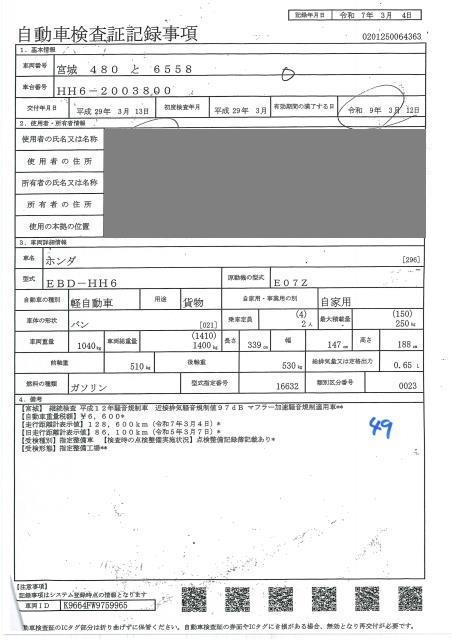 記録年月日 令和 7年 3月 4日
自動車検査証記録事項
0201250064363
1. 基本情報
車両番号 宮城 480 と 6558
車台番号 HH6-2003800
交付年月日 平成 29年 3月 13日 初度検査年月 平成 29年 3月 有効期間の満了する日 令和 9年 3月 12日
2. 使用者・所有者情報
使用者の氏名又は名称
使用者の住所
所有者の氏名又は名称
所有者の住所
使用の本拠の位置
3. 車両詳細情報
車名 ホンダ [296]
型式 EBD-HH6 原動機の型式 E07Z
自動車の種別 軽自動車 用途 貨物 自家用・事業用の別 自家用
車体の形状 バン [021] 乗車定員 (4) 2人 最大積載量 (150) 250kg
車両重量 1040kg 車両総重量 (1410) 1400kg 長さ 339cm 幅 147cm 高さ 188cm
前軸重 510kg 後軸重 530kg 総排気量又は定格出力 0.65L
燃料の種類 ガソリン 型式指定番号 16632 類別区分番号 0023
4. 備考
【宮城】 継続検査 平成12年騒音規制車 近接排気騒音規制値97dB マフラー加速騒音規制適用車**
【自動車重量税額】¥6,600*
【走行距離計表示値】128,600km(令和7年3月4日)*
【旧走行距離計表示値】86,100km(令和5年3月7日)*
【受検種別】指定整備車 【検査時の点検整備実施状況】点検整備記録簿記載あり*
【受検形態】指定整備工場**
49
【注意事項】
記録事項はシステム登録時点の情報となります
車両ID K9664FW9759965
自動車検査証のICタグ部分は折り曲げずに保管ください。自動車検査証の券面やICタグにき損がある場合、無効となり再交付が必要です。